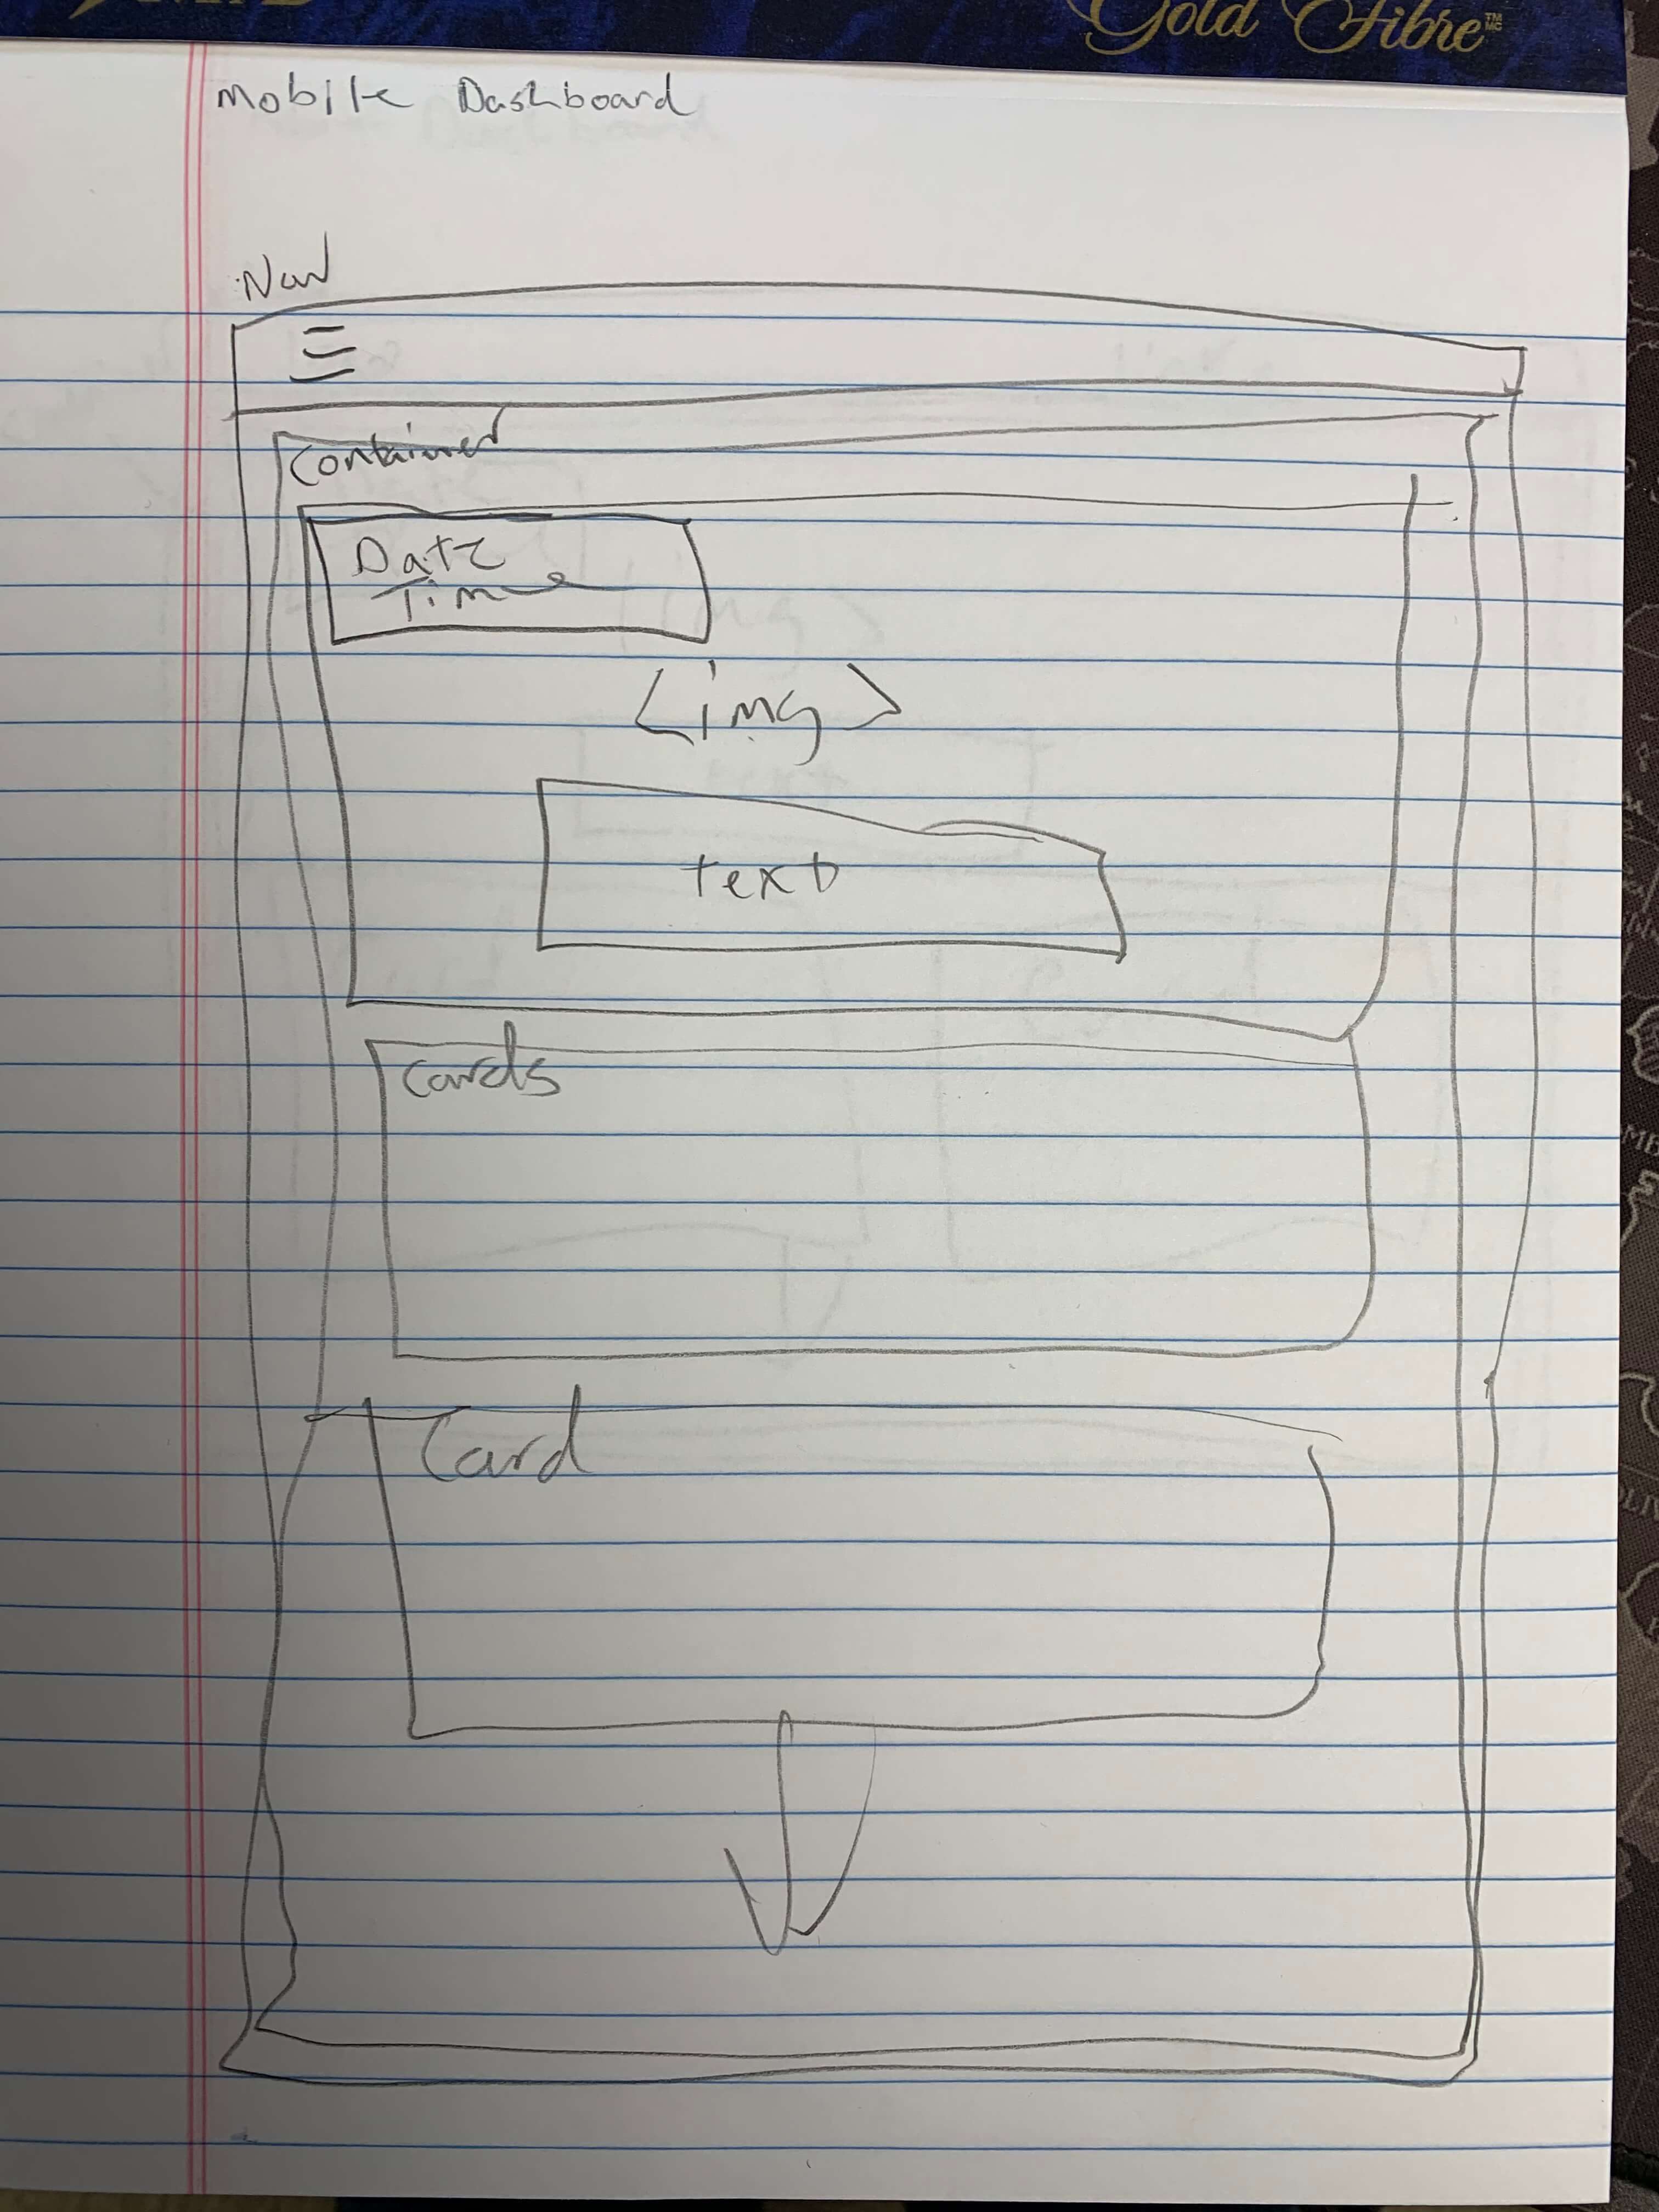 Gold Fibre™
MC
Mobile Dashboard
Nav
Container
Date
Time
<img>
text
Cards
Card